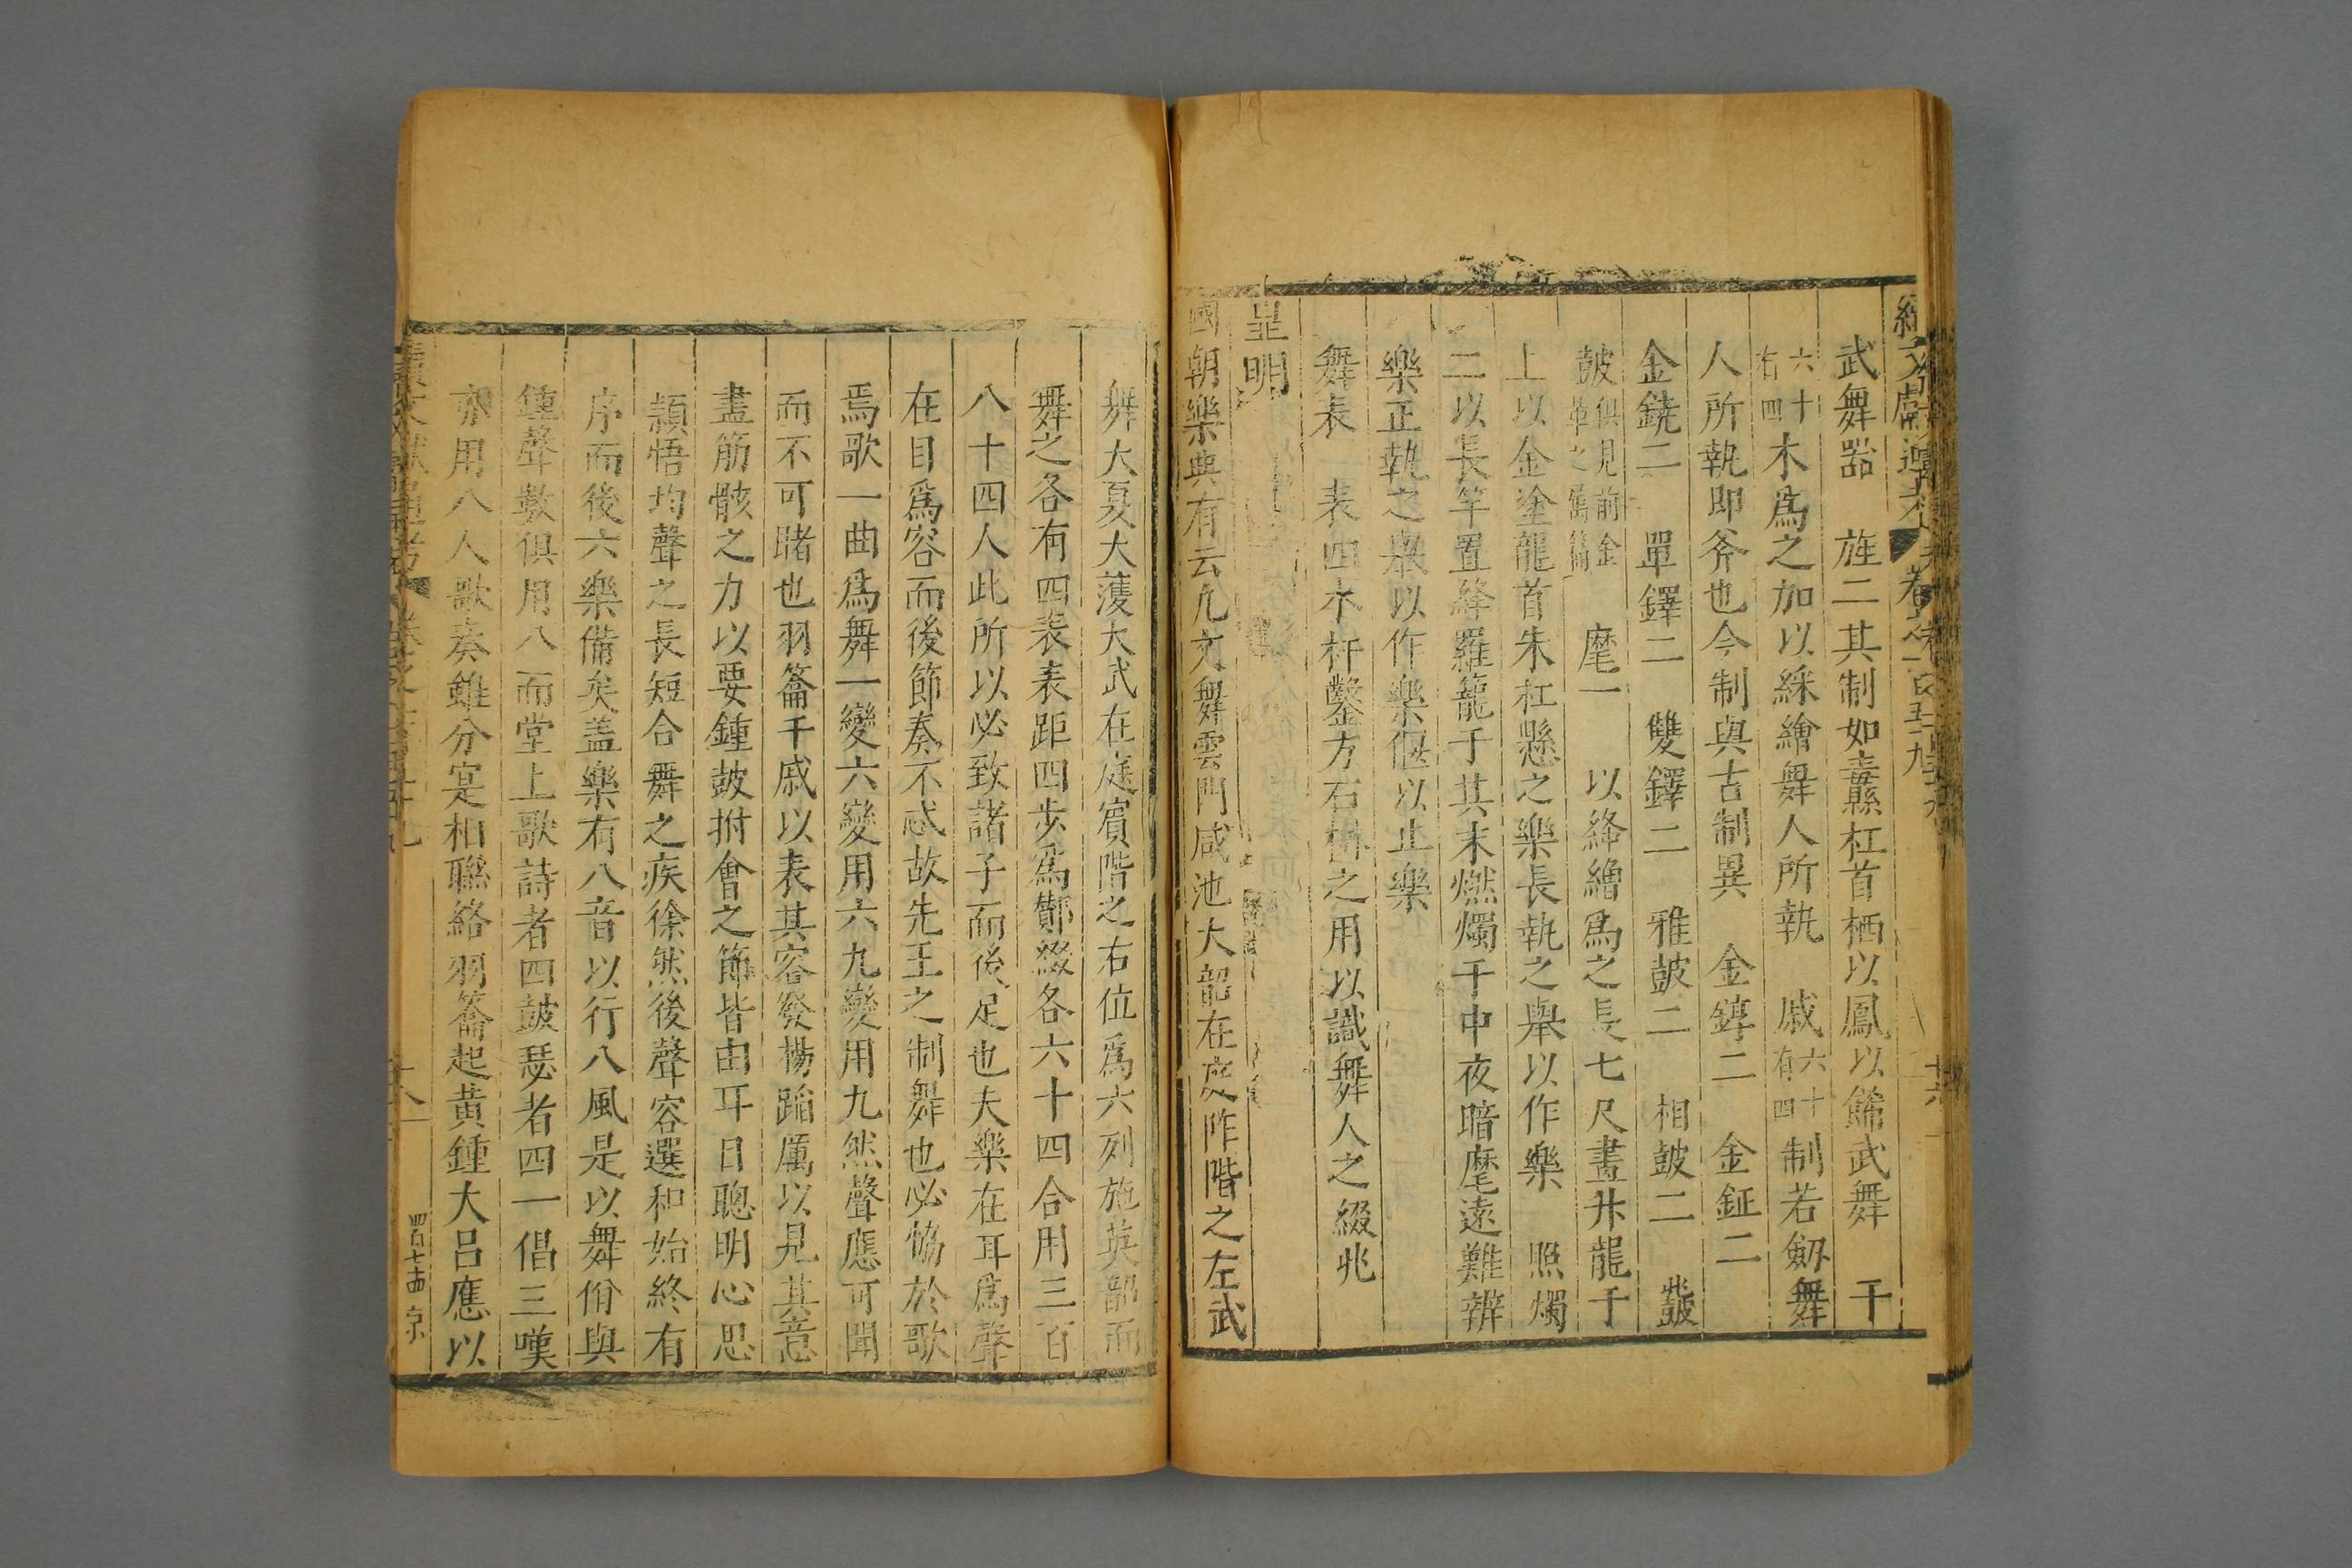 武舞器 旌二其制如纛縣杠首栖以鳳以餙武舞 干
六十有四木爲之加以綵繪舞人所執 戚六十有四制若劔舞
人所執即斧也今制與古制異 金錞二 金鉦二
金鐃二 單鐸二 雙鐸二 雅皷二 相皷二 鼗
皷俱見前金革之屬篇 麾一 以絳繒爲之長七尺畫升龍于
上以金塗龍首朱杠懸之樂長執之舉以作樂 照燭
二以長竿置絳羅籠于其末燃燭于中夜暗麾遠難辨
樂正執之舉以作樂偃以止樂
舞表 表四木杆鑿方石樹之用以識舞人之綴兆
皇明
國朝樂典有云凡文舞雲門咸池大韶在庭阼階之左武
舞大夏大濩大武在庭賓階之右位爲六列施英韶而
舞之各有四表表距四步爲酇綴各六十四合用三百
八十四人此所以必致諸子而後足也夫樂在耳爲聲
在目爲容而後節奏不忒故先王之制舞也必恊於歌
焉歌一曲爲舞一變六變用六九變用九然聲應可聞
而不可睹也羽籥干戚以表其容發揚蹈厲以見其意
盡筋骸之力以要鍾皷拊會之節皆由耳目聰明心思
頴悟均聲之長短合舞之疾徐然後聲容選和始終有
序而後六樂備矣盖樂有八音以行八風是以舞佾與
鍾聲數俱用八而堂上歌詩者四皷瑟者四一倡三嘆
亦用八人歌奏雖分寔相聯絡羽籥起黃鍾大吕應以